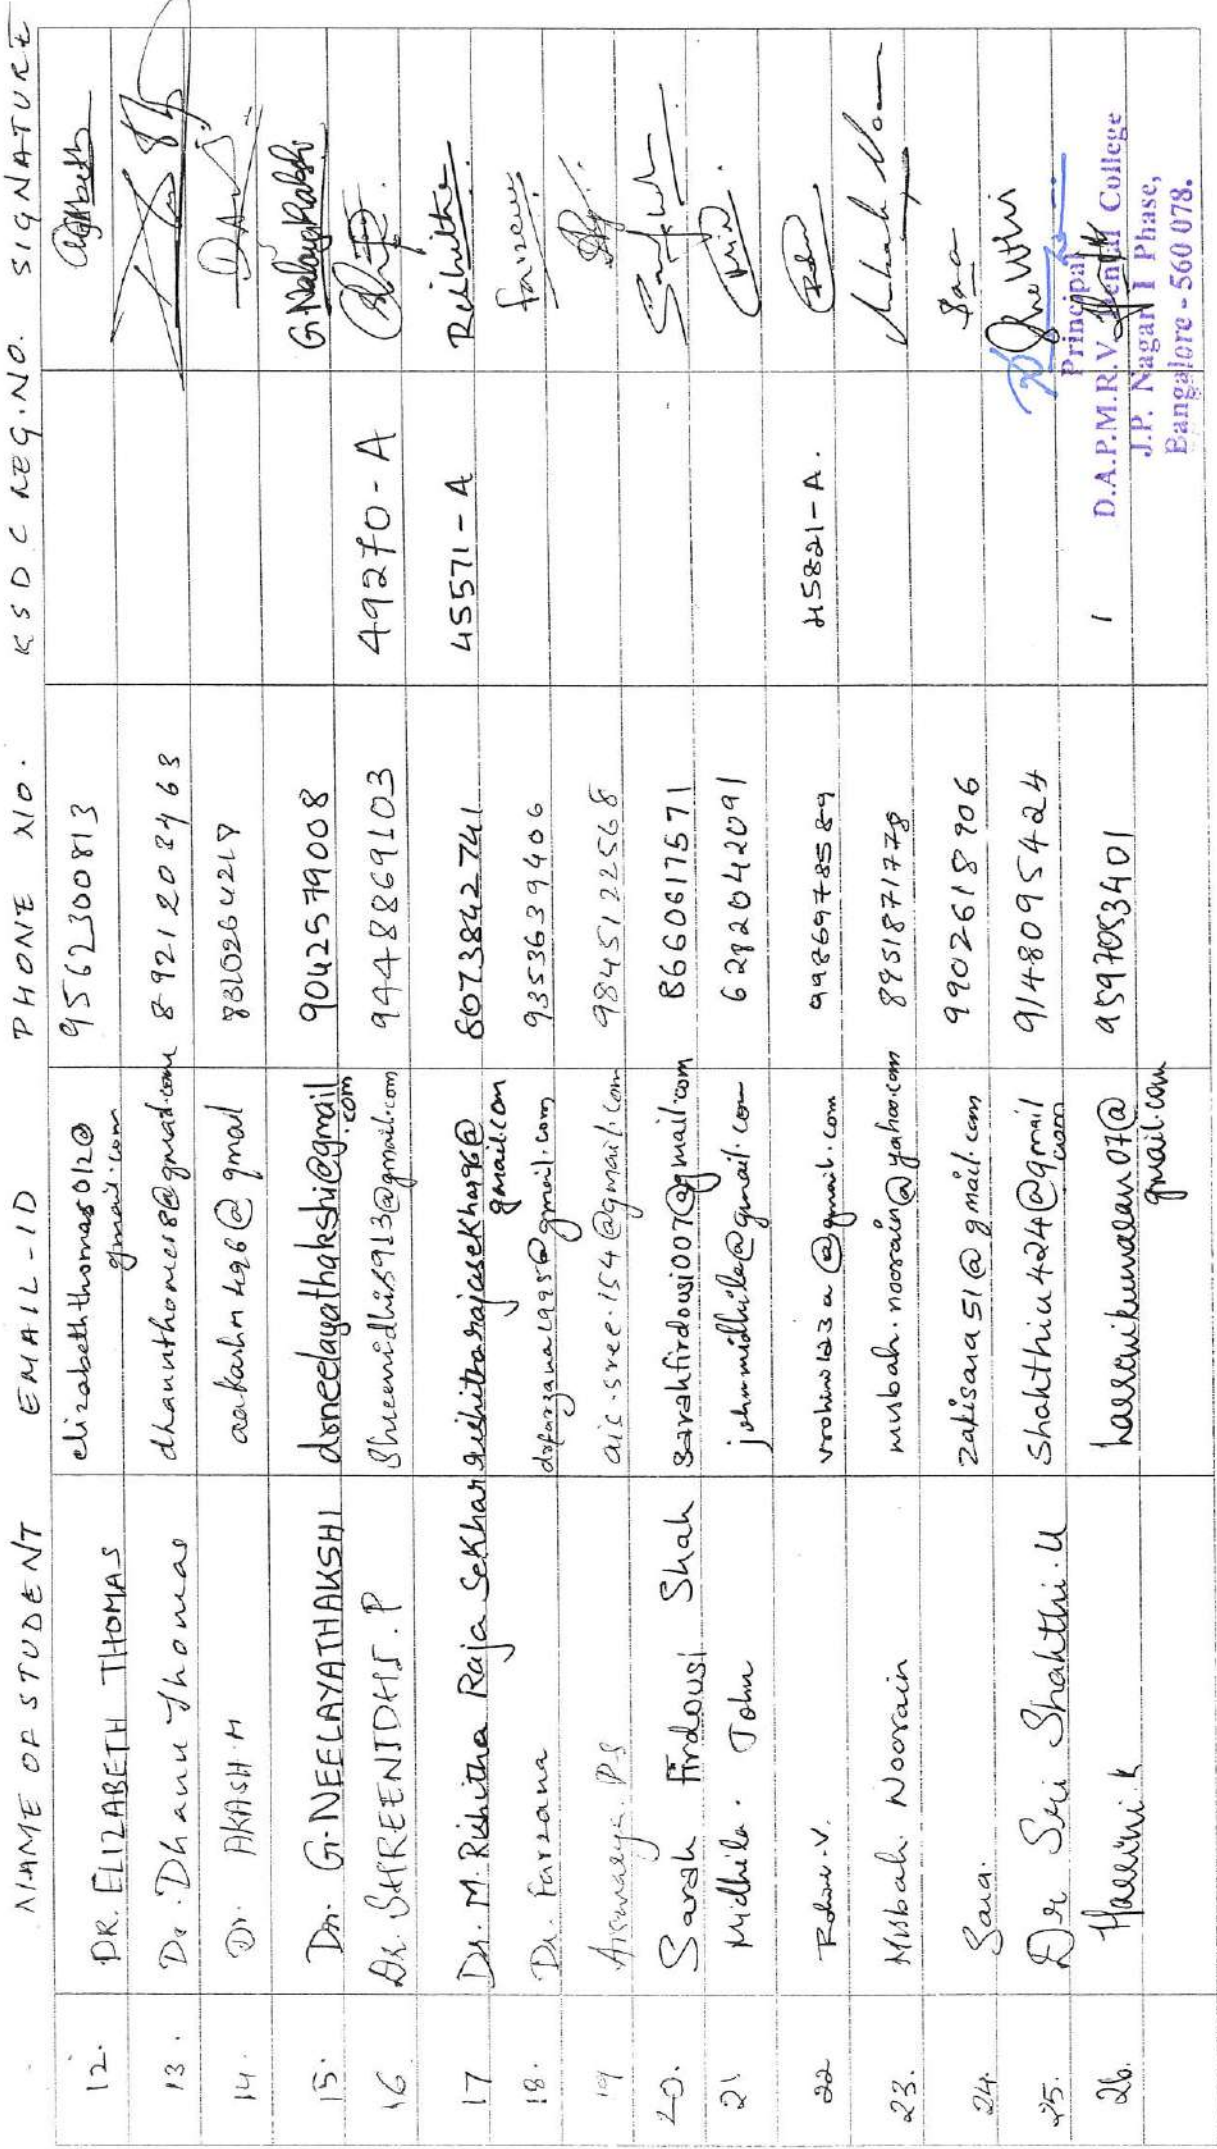 NAME OF STUDENT EMAIL-ID PHONE NO. KSDC REG.NO. SIGNATURE
12. DR. ELIZABETH THOMAS elizabeththomas012@ 9562300813
gmail.com
13. Dr. Dhanu Thomas dhanuthomas8@gmail.com 8921203463
14. Dr. AKASH.M aakashm496@gmail 8310264218
15. Dr. G.NEELAYATHAKSHI drneelayathakshi@gmail 9042579008
.com
16 Dr. SHREENIDHI.P Shreenidhis913@gmail.com 9448869103 49270-A
17 Dr. M. Rishitha Raja Sekhar rishitharajasekhar96@ 8073842741 45571-A Rishitha
gmail.com
18. Dr. Farzana drfarzana1995@gmail.com 9353639406
19 Aiswarya. P.S ais.sree.154@gmail.com 9845122568
20. Sarah Firdousi Shah sarahfirdousi007@gmail.com 8660617571
21 Midhila. John johnmidhila@gmail.com 6282042091
22 Rohini.V. vrohini123a@gmail.com 9986978589 45821-A.
23. Misbah Noorain misbah.noorain@yahoo.com 8951871778
24. Sara. zakisara51@gmail.com 9902618906 Sara
25. Dr Sri Shakthi.U Shakthiu424@gmail 9148095424
.com
26. Haarini.K haarinikumaran07@ 9597053401
gmail.com
Principal
D.A.P.M.R.V. Dental College
J.P. Nagar I Phase,
Bangalore - 560 078.